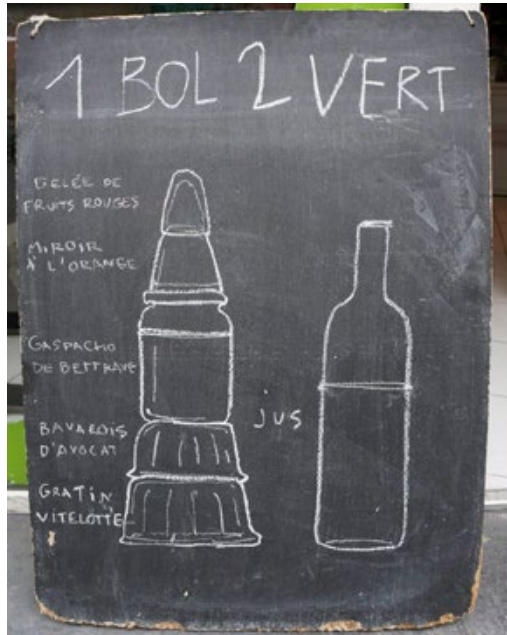 1 BOL 2 VERT
GELÉE DE
FRUITS ROUGES
MIROIR
À L'ORANGE
GASPACHO
DE BETTRAVE
jus
BAVAROIS
D'AVOCAT
GRATIN
VITELOTTE